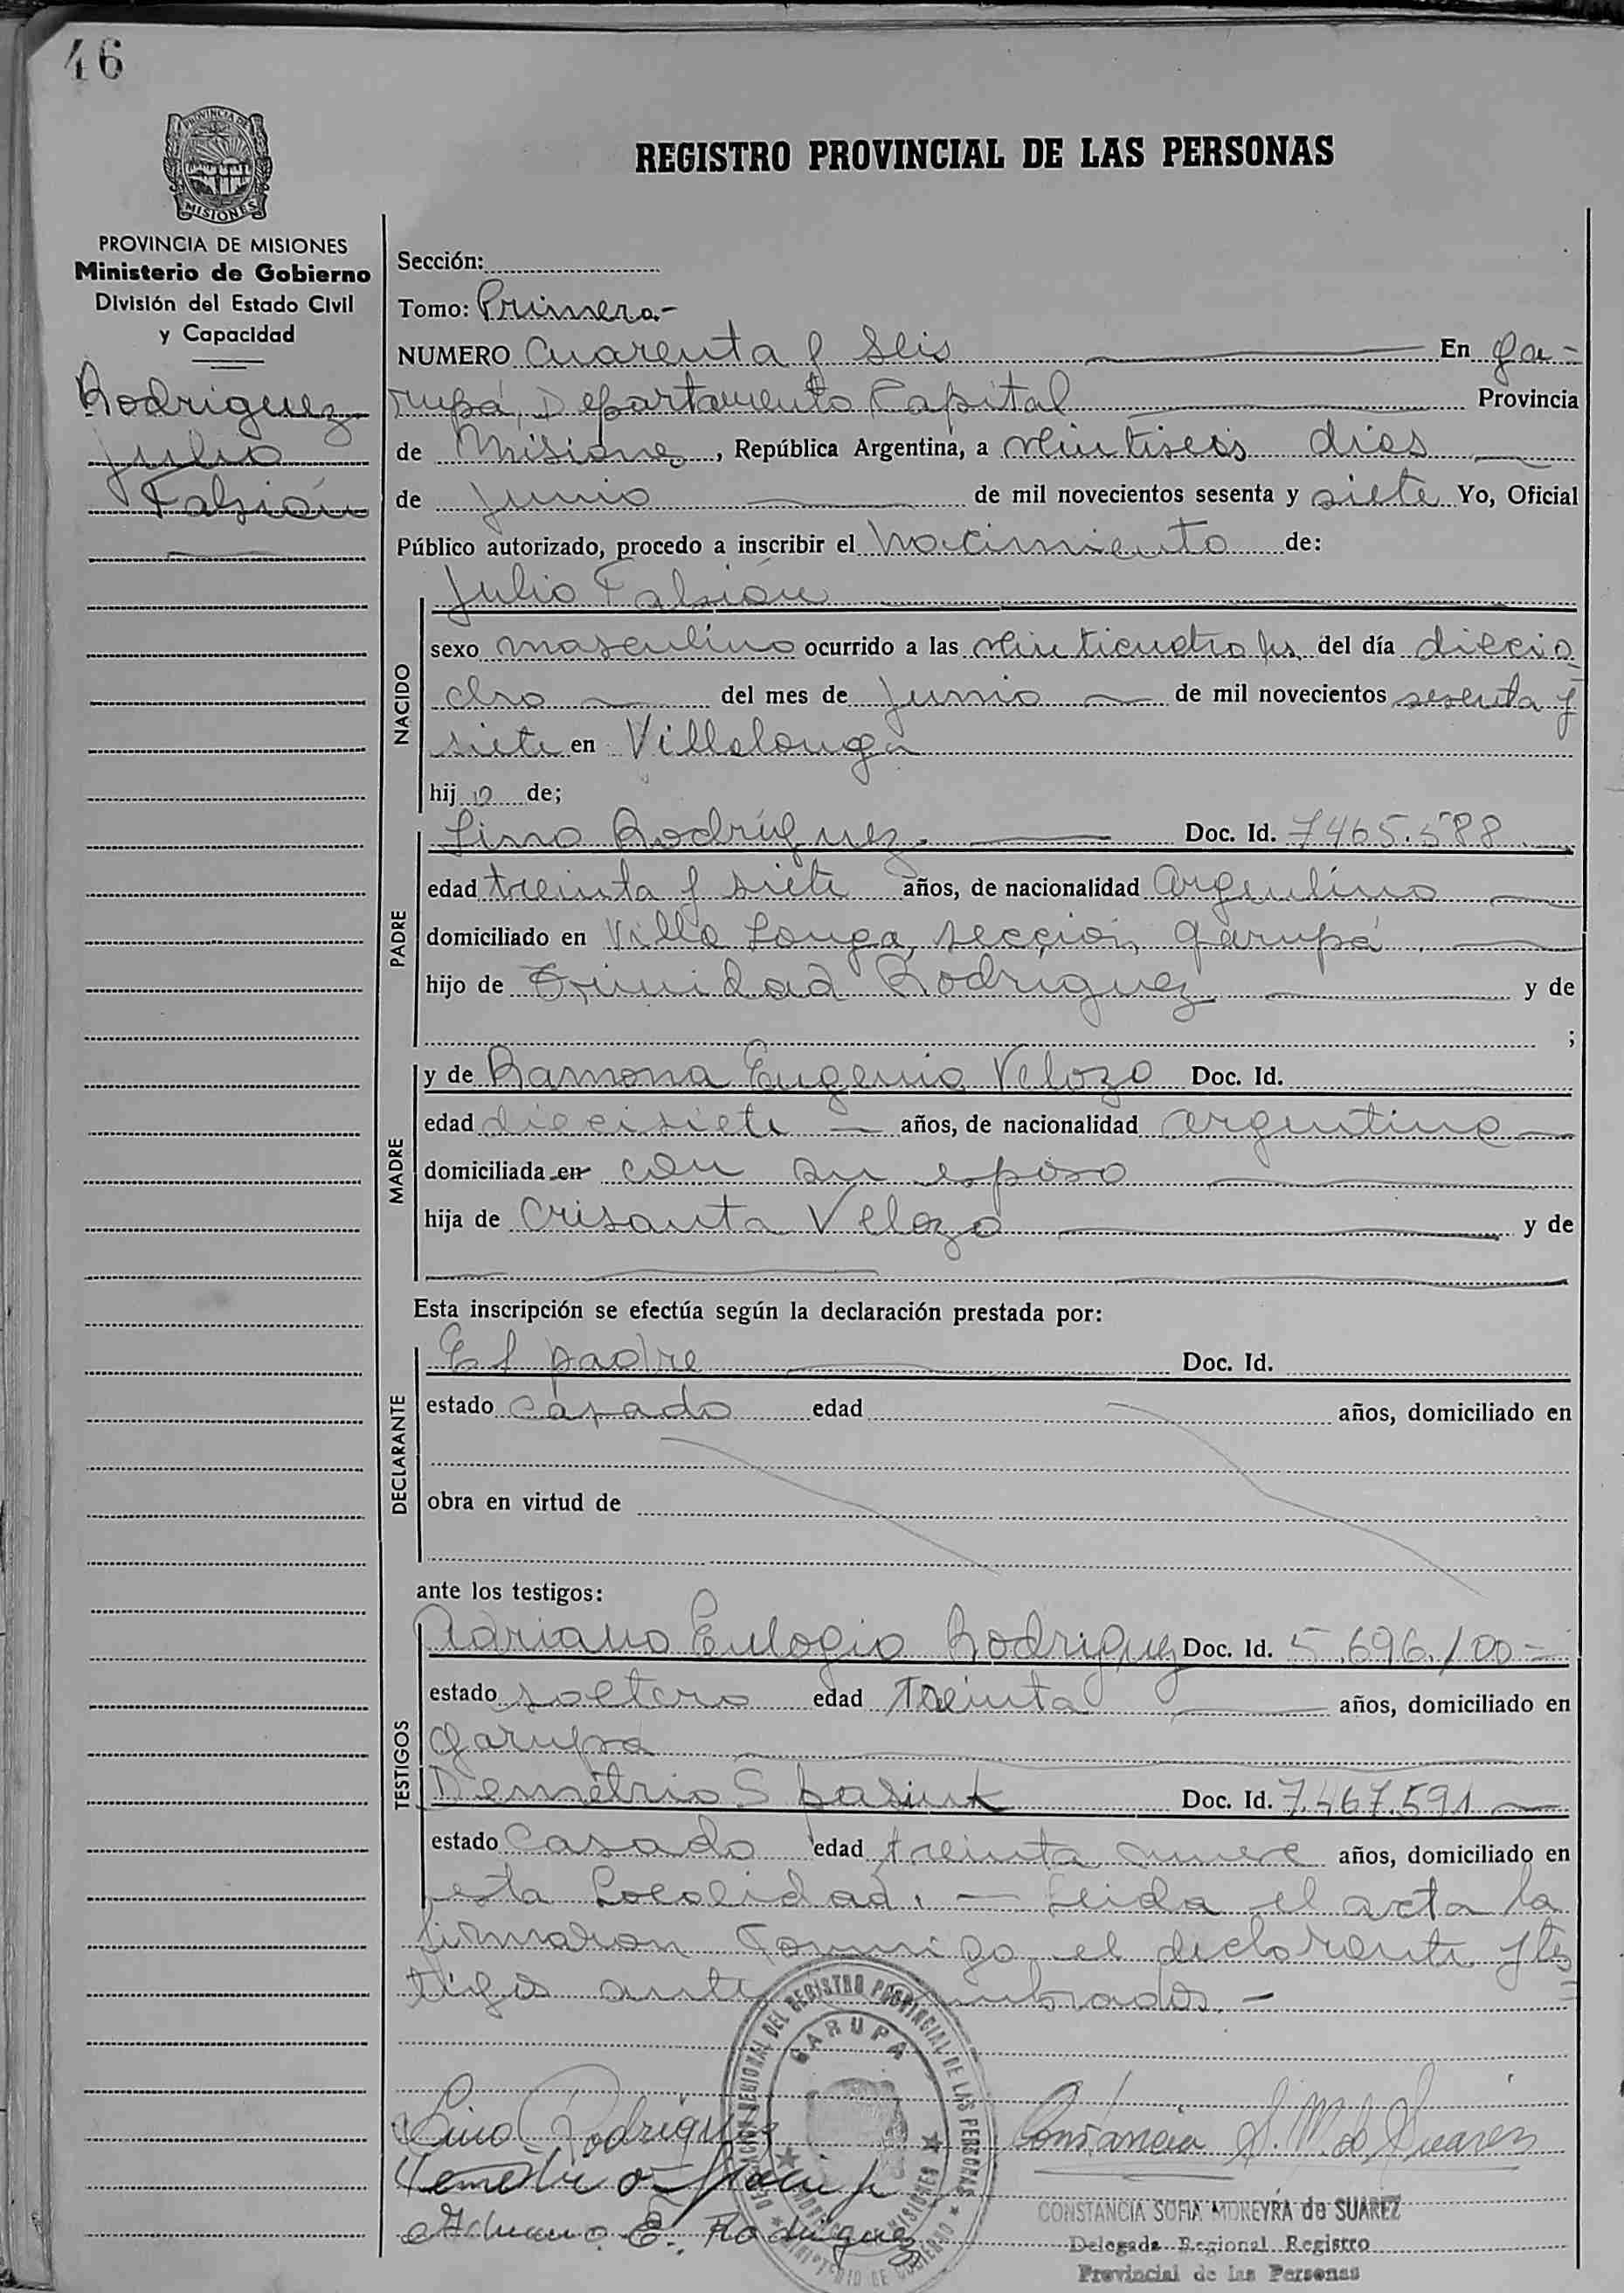 46
PROVINCIA DE
MISIONES
REGISTRO PROVINCIAL DE LAS PERSONAS
PROVINCIA DE MISIONES
Ministerio de Gobierno
División del Estado Civil
y Capacidad
Rodriguez
Julio
Fabián
Sección:
Tomo: Primero-
NUMERO Cuarenta y Seis En Ga-
rupá, Departamento Capital Provincia
de Misiones, República Argentina, a veintiseis dias
de Junio de mil novecientos sesenta y siete Yo, Oficial
Público autorizado, procedo a inscribir el nacimiento de:
NACIDO
Julio Fabián
sexo masculino ocurrido a las veinticuatro hs del día diecio
cho del mes de Junio de mil novecientos sesenta y
siete en Villalonga
hijo de;
PADRE
Lino Rodríguez. Doc. Id. 7465.588
edad treinta y siete años, de nacionalidad Argentino
domiciliado en Villa Longa, sección, Garupá
hijo de Trinidad Rodriguez y de
;
MADRE
y de Ramona Eugenia Velozo Doc. Id.
edad diecisiete años, de nacionalidad argentina
domiciliada en con su esposo
hija de Crisanta Velozo y de
Esta inscripción se efectúa según la declaración prestada por:
DECLARANTE
El padre Doc. Id.
estado casado edad años, domiciliado en
obra en virtud de
ante los testigos:
TESTIGOS
Adriano Eulogio Rodriguez Doc. Id. 5.696.100=
estado soltero edad treinta años, domiciliado en
Garupa
Demétrio Spasiuk Doc. Id. 7.467.591
estado Casado edad treinta nueve años, domiciliado en
esta Localidad. - Leida el acta la
firmaron conmigo el declarante y tes
tigos ante nombrados.-
DELEGACION REGIONAL DEL REGISTRO PROVINCIAL DE LAS PERSONAS
GARUPA
MISIONES
MINISTERIO DE GOBIERNO
Lino Rodriguez
Constancia S. M. de Suarez
Adriano E. Rodriguez
CONSTANCIA SOFIA MOREYRA de SUAREZ
Delegada Regional Registro
Provincial de las Personas